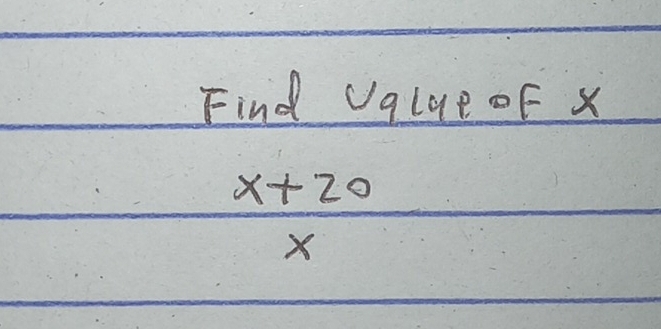 Find Value of x
x+20
x